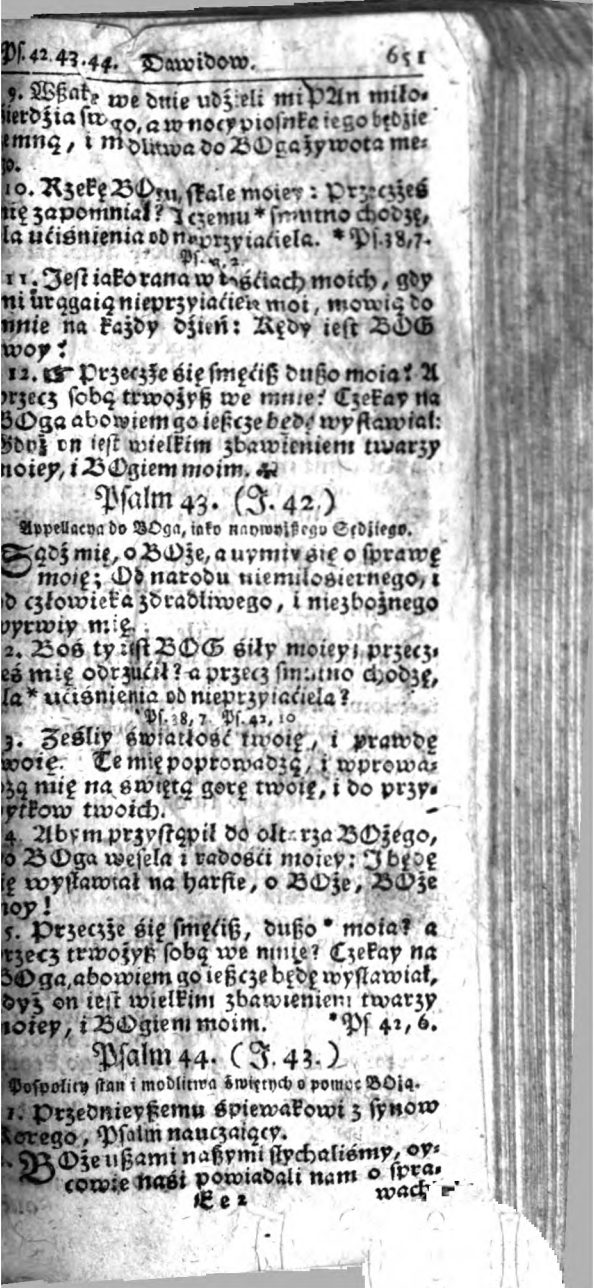 Ps. 42.43.44. Dawidow. 651
9. Wßakże we dnie udźieli mi PAn miło-
sierdźia swego, a w nocy piosnka iego będźie
zemną, i modlitwa do BOga żywota me-
go.
10. Rzekę BOgu, skale moiey: Przeczżeś
mię zapomniał? I czemu * smutno chodzę,
dla ućiśnienia od nieprzyiaćiela. * Ps. 38, 7.
11. Jest iako rana w kośćiach moich, gdy
mi urągaią nieprzyiaćiele moi, mowią do
mnie na każdy dźień: Kędy iest BOG
twoy?
12. ☞ Przeczże się smęćiß dußo moia? A
przecz sobą trwożyß we mnie? Czekay na
BOga abowiem go ießcze będę wysławiał:
Gdyż on iest wielkim zbawieniem twarzy
moiey, i BOgiem moim.
Psalm 43. (J. 42.)
Appellacya do BOga, iako naywyżßego Sędźiego.
Sądź mię, o BOże, a uymiy się o sprawę
moię; Od narodu niemiłosiernego, i
od człowieka zdradliwego, i niezbożnego
wyrwiy mię.
2. Boś ty iest BOG śiły moiey; przecz-
żeś mię odrzućił? a przecz smutno chodzę,
dla * ućiśnienia od nieprzyiaćiela?
* Ps. 38, 7. Ps. 42, 10
3. Ześliy światłość twoię, i prawdę
twoię. Te mię poprowadzą, i wprowa-
dzą mię na świętą gorę twoię, i do przy-
bytkow twoich.
4. Abym przystąpił do ołtarza BOżego,
do BOga wesela i radośći moiey: I będę
ćię wysławiał na harfie, o BOże, BOże
moy!
5. Przeczże się smęćiß, dußo * moia? a
przecz trwożyß sobą we mnie? Czekay na
BOga, abowiem go ießcze będę wysławiał,
gdyż on iest wielkim zbawieniem twarzy
moiey, i BOgiem moim. * Ps 42, 6.
Psalm 44. (J. 43.)
Pospolity stan i modlitwa świętych o pomoc BOżą.
1. Przednieyßemu śpiewakowi z synow
Korego, Psalm nauczaiący.
BOże ußami naßymi słychaliśmy, oy-
cowie nasi powiadali nam o spra-
Ee 2 wach